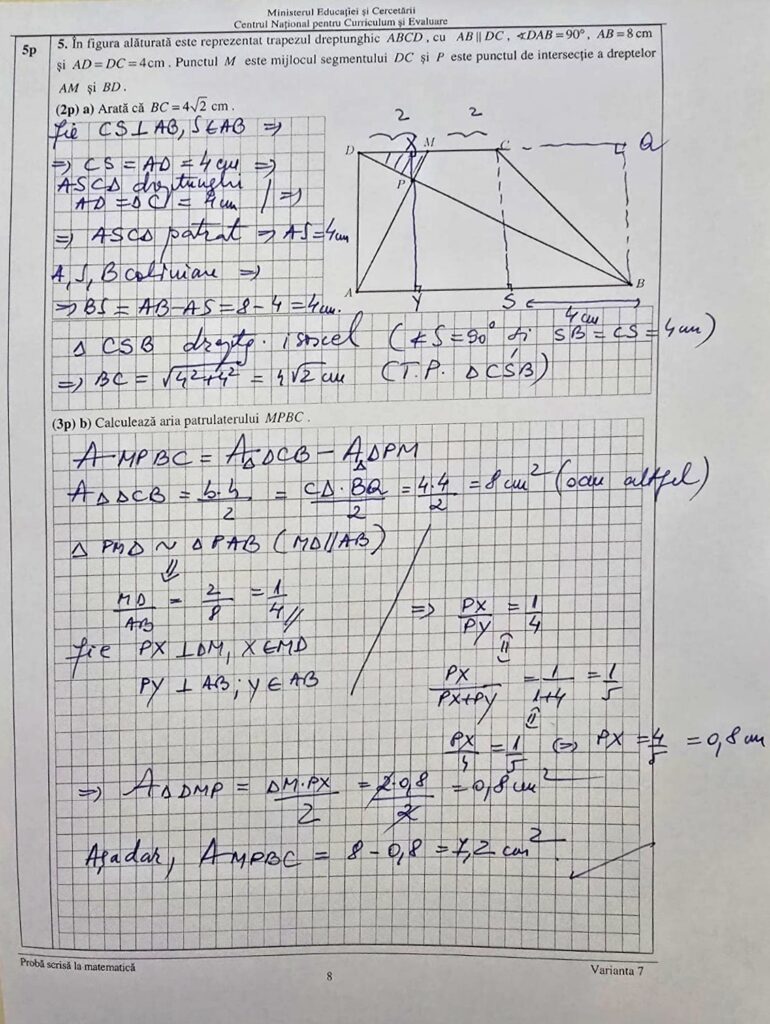 Ministerul Educației și Cercetării
Centrul Național pentru Curriculum și Evaluare
5p
5. În figura alăturată este reprezentat trapezul dreptunghic ABCD, cu AB || DC, ∢DAB = 90°, AB = 8 cm
și AD = DC = 4 cm. Punctul M este mijlocul segmentului DC și P este punctul de intersecție a dreptelor
AM și BD.
(2p) a) Arată că BC = 4√2 cm.
fie CS ⊥ AB, S ∈ AB ⇒
⇒ CS = AD = 4 cm ⇒
ASCD dreptunghi
AD = DC = 4cm | ⇒
⇒ ASCD patrat ⇒ AS = 4cm
A, S, B coliniare ⇒
⇒ BS = AB - AS = 8 - 4 = 4cm.
2 2
D X M C Q
P
A Y S B
4 cm
Δ CSB drept. isoscel (∢S = 90° și SB = CS = 4cm)
⇒ BC = √4²+4² = 4√2 cm (T.P. ΔCSB)
(3p) b) Calculează aria patrulaterului MPBC.
A MPBC = A Δ DCB - A Δ DPM
A Δ DCB = b·h/2 = CD·BQ/2 = 4·4/2 = 8 cm² (sau altfel)
Δ PMD ~ Δ PAB (MD//AB)
⇓
MD/AB = 2/8 = 1/4
fie PX ⊥ DM, X ∈ MD
PY ⊥ AB; Y ∈ AB
⇒ PX/PY = 1/4
⇓
PX/PX+PY = 1/1+4 = 1/5
⇓
PX/4 = 1/5 ⇔ PX = 4/5 = 0,8 cm
⇒ A Δ DMP = DM·PX/2 = 2·0,8/2 = 0,8 cm²
Așadar, A MPBC = 8 - 0,8 = 7,2 cm².
Probă scrisă la matematică
8
Varianta 7